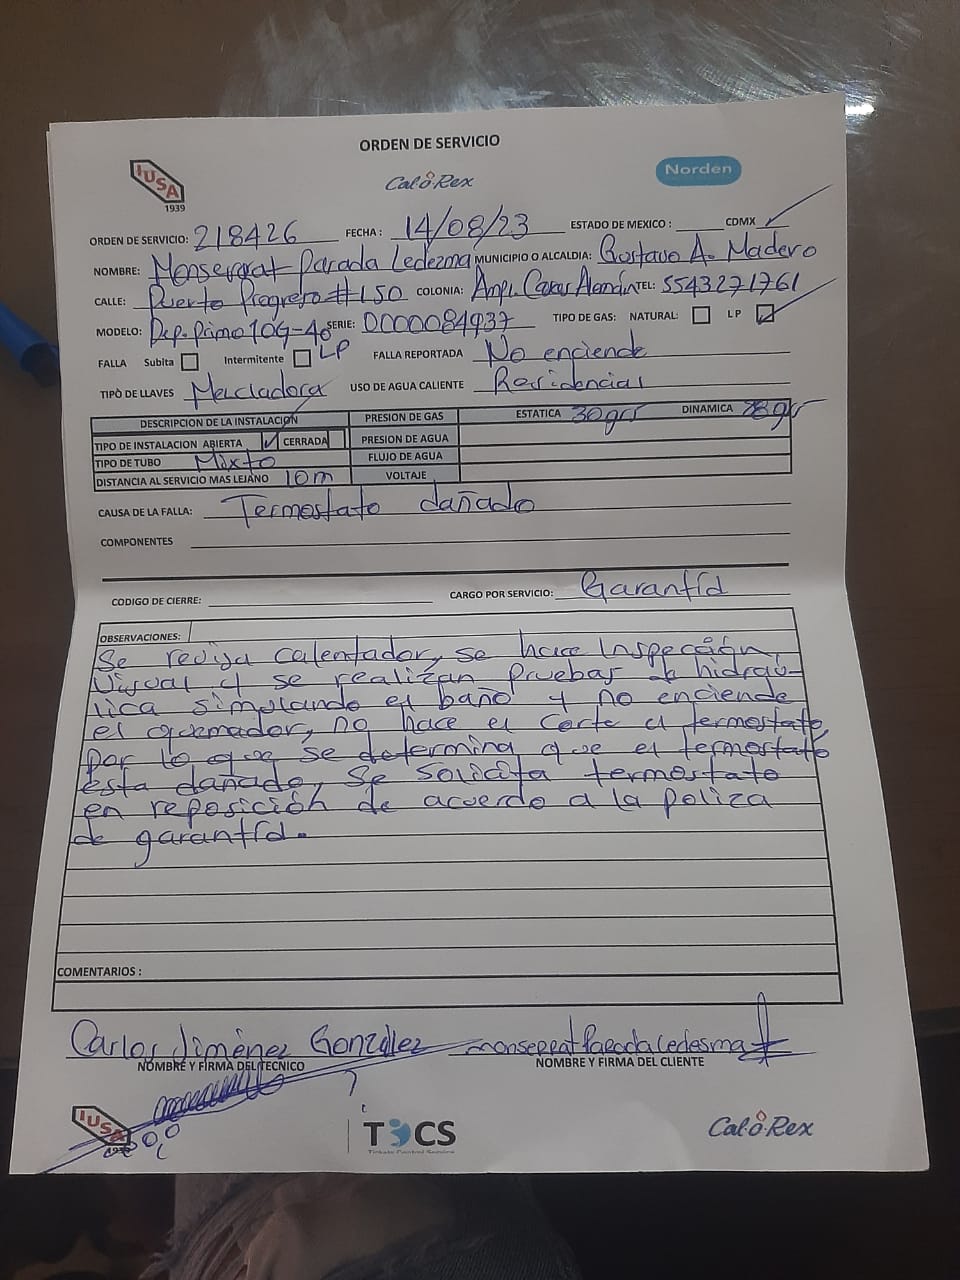 ORDEN DE SERVICIO
IUSA 1939 Cal-o-Rex Norden
ORDEN DE SERVICIO: 218426 FECHA: 14/08/23 ESTADO DE MEXICO: CDMX ✓
NOMBRE: Monserrat Parada Ledezma MUNICIPIO O ALCALDIA: Gustavo A. Madero
CALLE: Puerto Progreso #150 COLONIA: Amp. Casas Alemán TEL: 5543271761
MODELO: Dep. Primo 10G-40 LP SERIE: 0000084937 TIPO DE GAS: NATURAL: ☐ LP ☑
FALLA Subita ☐ Intermitente ☐ FALLA REPORTADA No enciende
TIPO DE LLAVES Mezcladora USO DE AGUA CALIENTE Residencial
DESCRIPCION DE LA INSTALACION PRESION DE GAS ESTATICA 30gr DINAMICA 28gr
TIPO DE INSTALACION ABIERTA ✓ CERRADA PRESION DE AGUA
TIPO DE TUBO Mixto FLUJO DE AGUA
DISTANCIA AL SERVICIO MAS LEJANO 10m VOLTAJE
CAUSA DE LA FALLA: Termostato dañado
COMPONENTES
CODIGO DE CIERRE: CARGO POR SERVICIO: Garantía
OBSERVACIONES:
Se revisa calentador, se hace Inspección
Visual y se realizan Pruebas de hidraú-
lica simulando el baño y no enciende
el quemador, no hace el corte el termostato
por lo que se determina que el termostato
esta dañado, Se Solicita termostato
en reposición de acuerdo a la poliza
de garantía.
COMENTARIOS :
Carlos Jiménez González monserrat Parada Ledesma
NOMBRE Y FIRMA DEL TECNICO NOMBRE Y FIRMA DEL CLIENTE
IUSA 1939 TCS Cal-o-Rex
Tickets Control Service